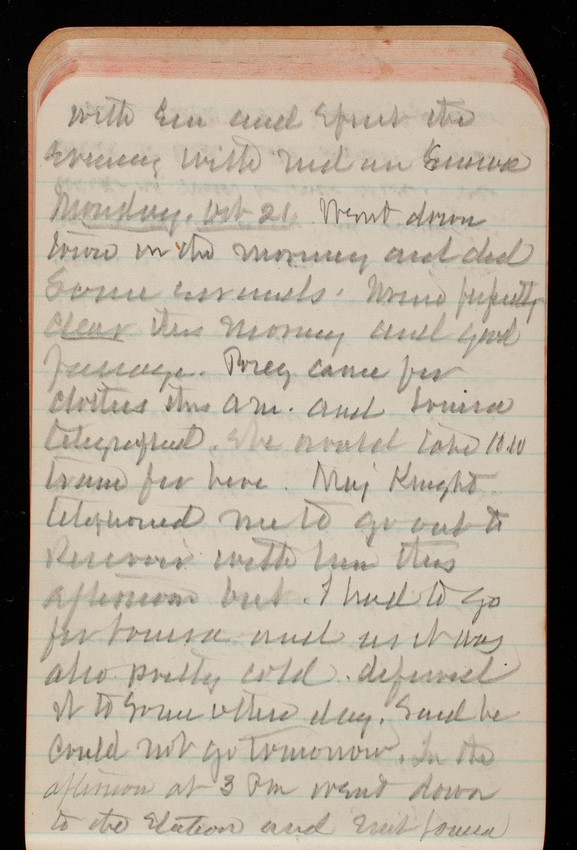 with Em and Spent the
Evening with and in
Monday. Oct 21. Went down
town in the morning and did
Some errands. perfectly
clear this morning and good
passage. came for
clothes this a.m. and Louisa
telegraphed. She would take 10.10
train for here. Maj Knight
telephoned me to go out to
Reservoir with him this
afternoon but. I had to go
for Louisa and as it was
also pretty cold. deferred
it to some other day. Said he
could not go tomorrow. In the
afternoon at 3 Pm went down
to the Station and met Louisa